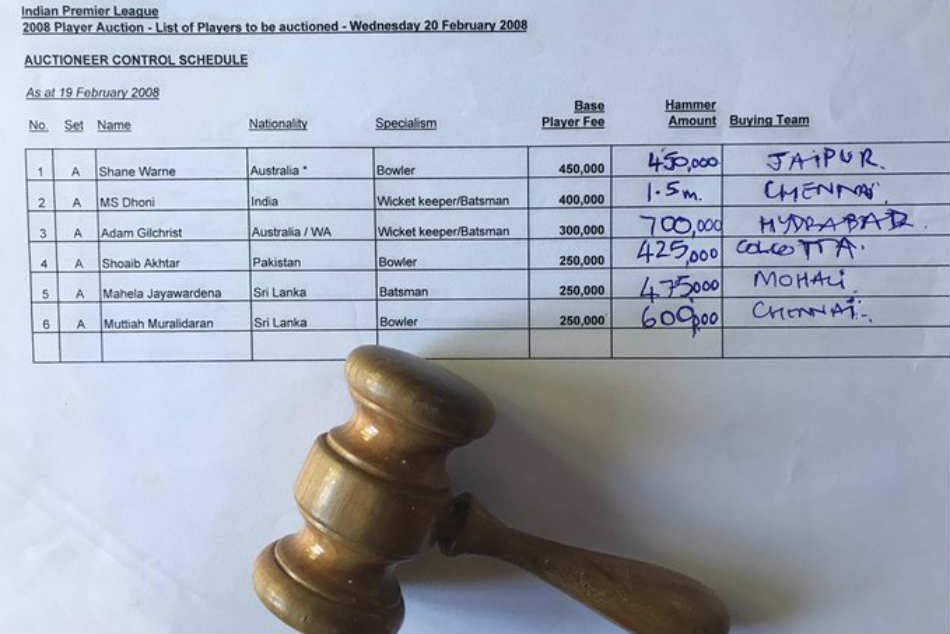 Indian Premier League
2008 Player Auction - List of Players to be auctioned - Wednesday 20 February 2008
AUCTIONEER CONTROL SCHEDULE
As at 19 February 2008
Base Hammer
No. Set Name Nationality Specialism Player Fee Amount Buying Team
1 A Shane Warne Australia * Bowler 450,000 450,000 JAIPUR.
2 A MS Dhoni India Wicket keeper/Batsman 400,000 1.5m. CHENNAI.
3 A Adam Gilchrist Australia / WA Wicket keeper/Batsman 300,000 700,000 HYDRABAD.
4 A Shoaib Akhtar Pakistan Bowler 250,000 425,000 CALCOTTA.
5 A Mahela Jayawardena Sri Lanka Batsman 250,000 475000 MOHALi.
6 A Muttiah Muralidaran Sri Lanka Bowler 250,000 600,000 CHENNAI.